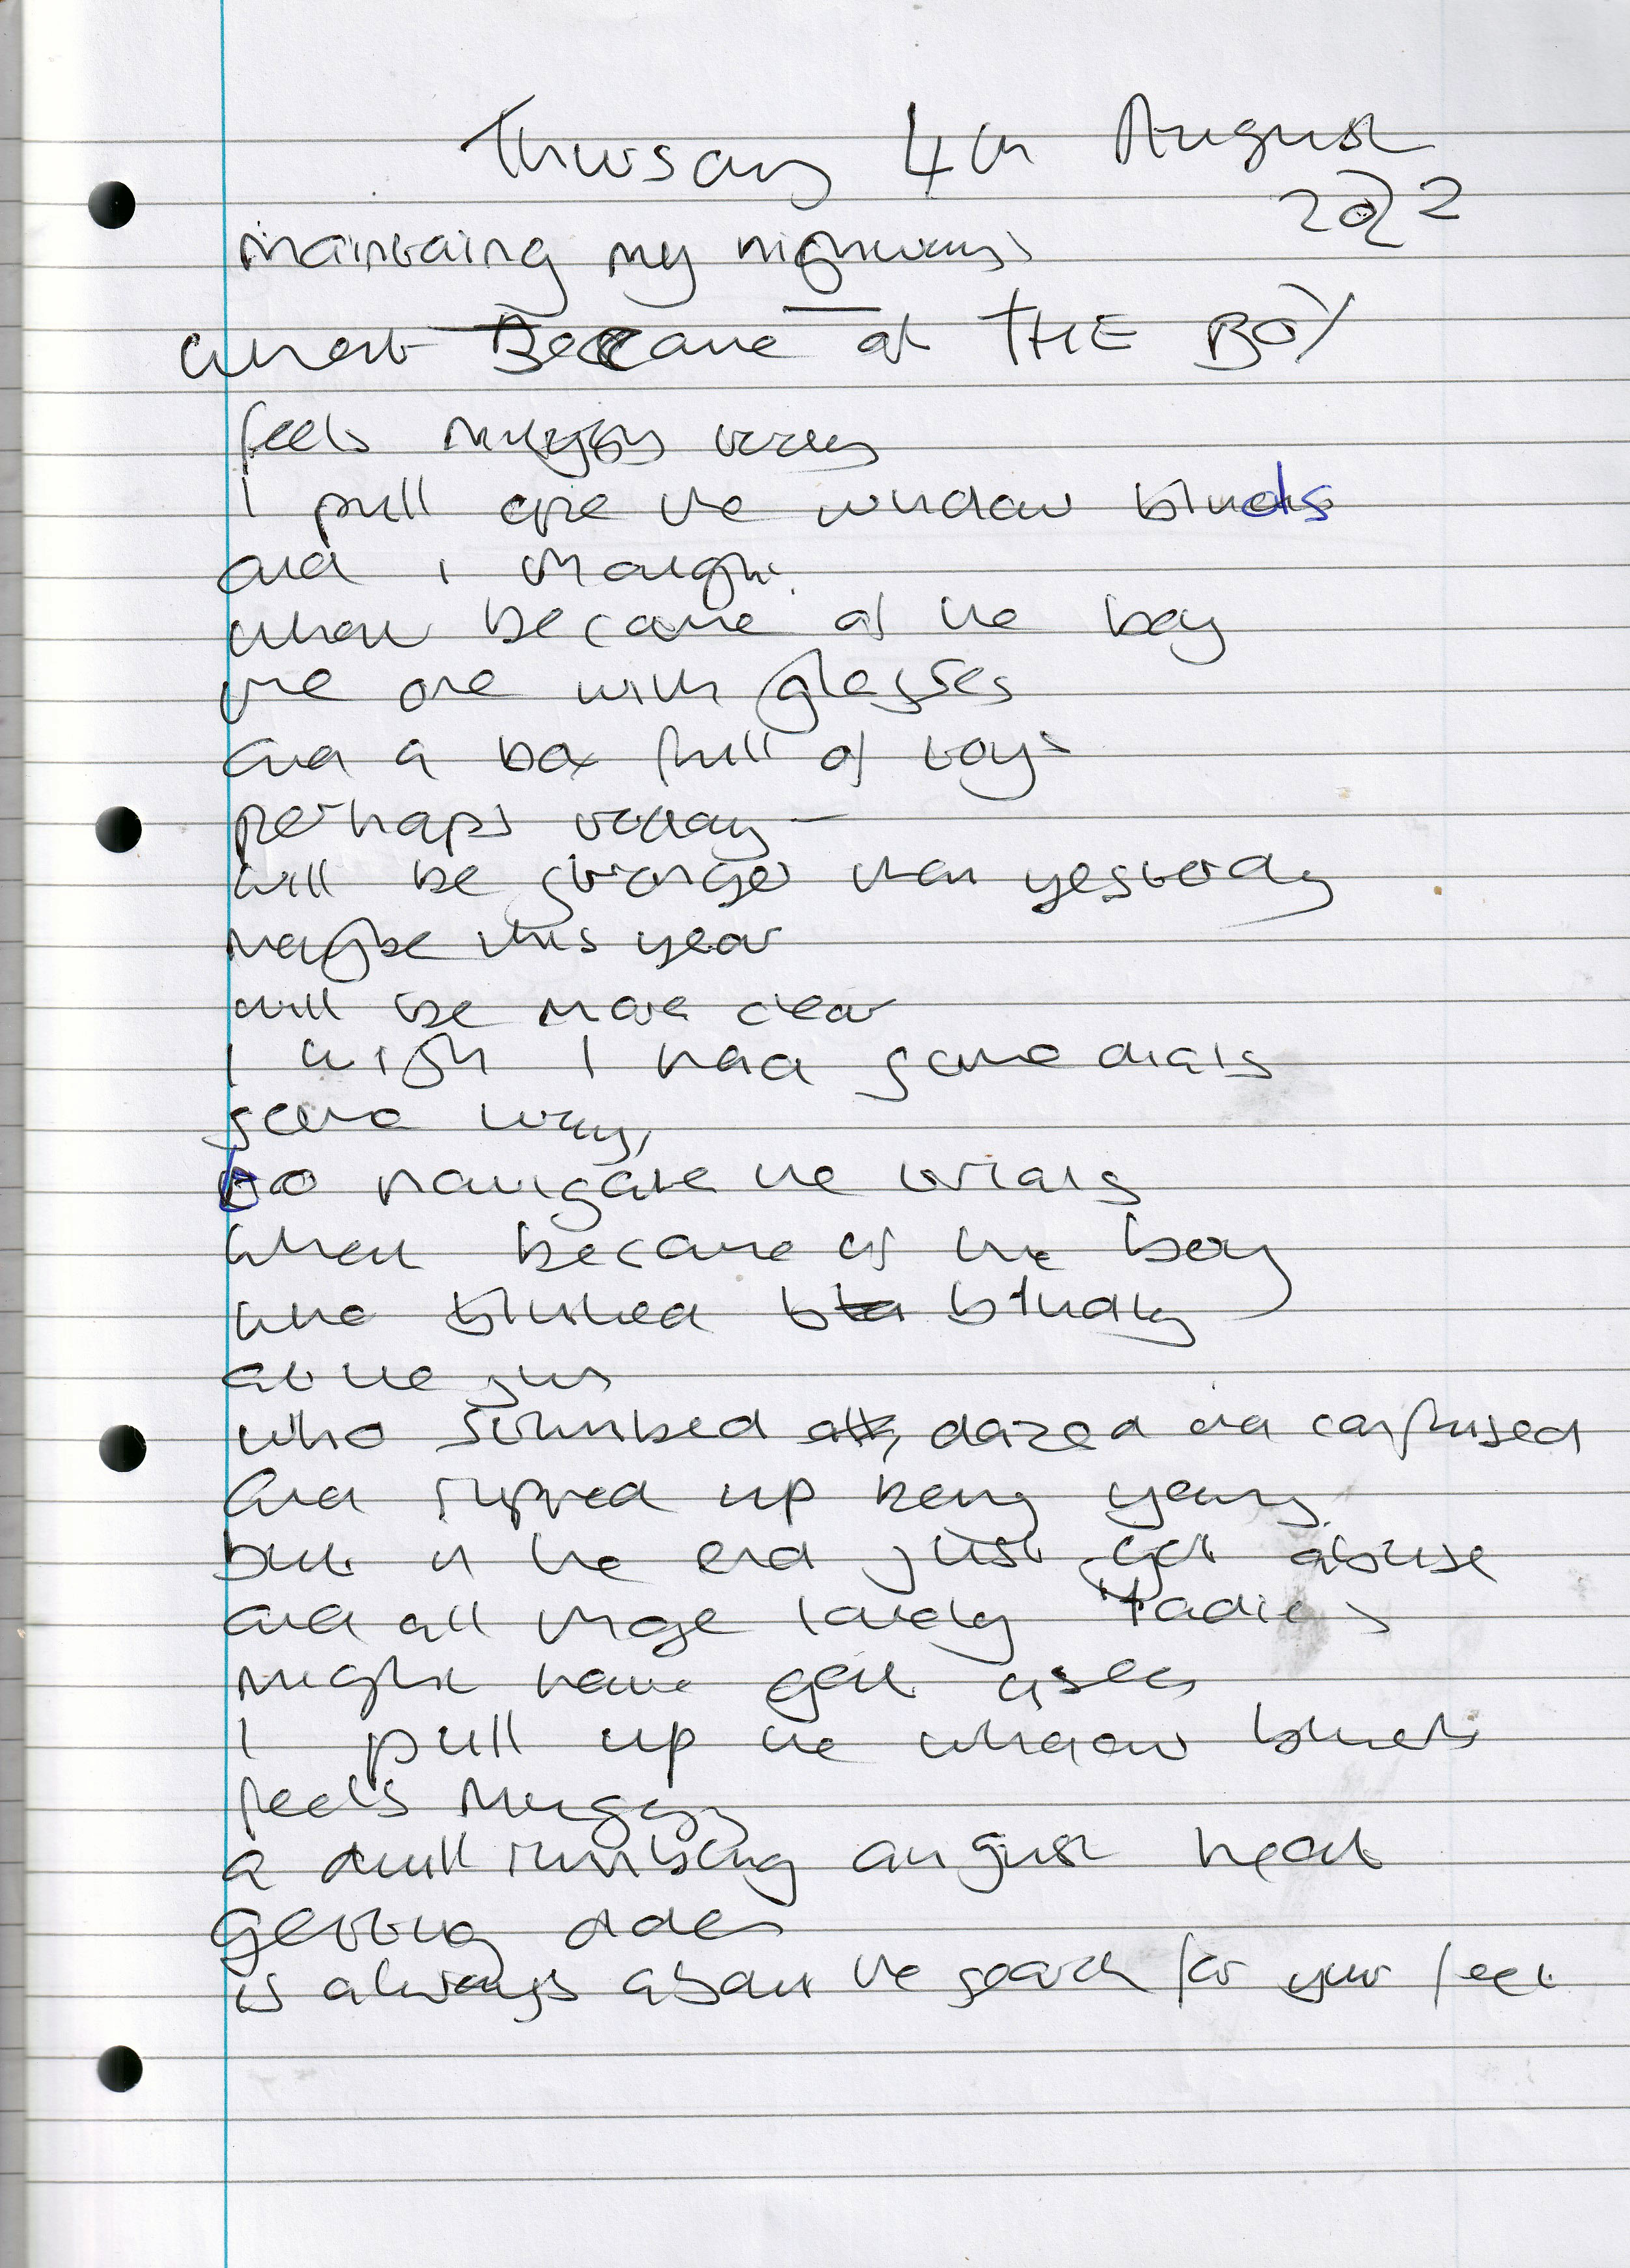 Thursday 4th August
2022
maintaing my highways
what Became of THE BOY
feels muggy
I pull ope the window blinds
and i thought
what became of the boy
the one with glasses
and a box full of toys
perhaps today
will be stronger than yesterday
maybe this year
will be more clear
I wish I had some dials
some way,
to navigate the trials
what became of the boy
who blinked blindly
at the sun
who stumbled dazed and confused
and ripped up being young
but in the end just got abuse
and all those lovely tadies
might have got
I pull up the window blinds
feels muggy
a dull rumbling august heat
getting older
is always about the search for your feet